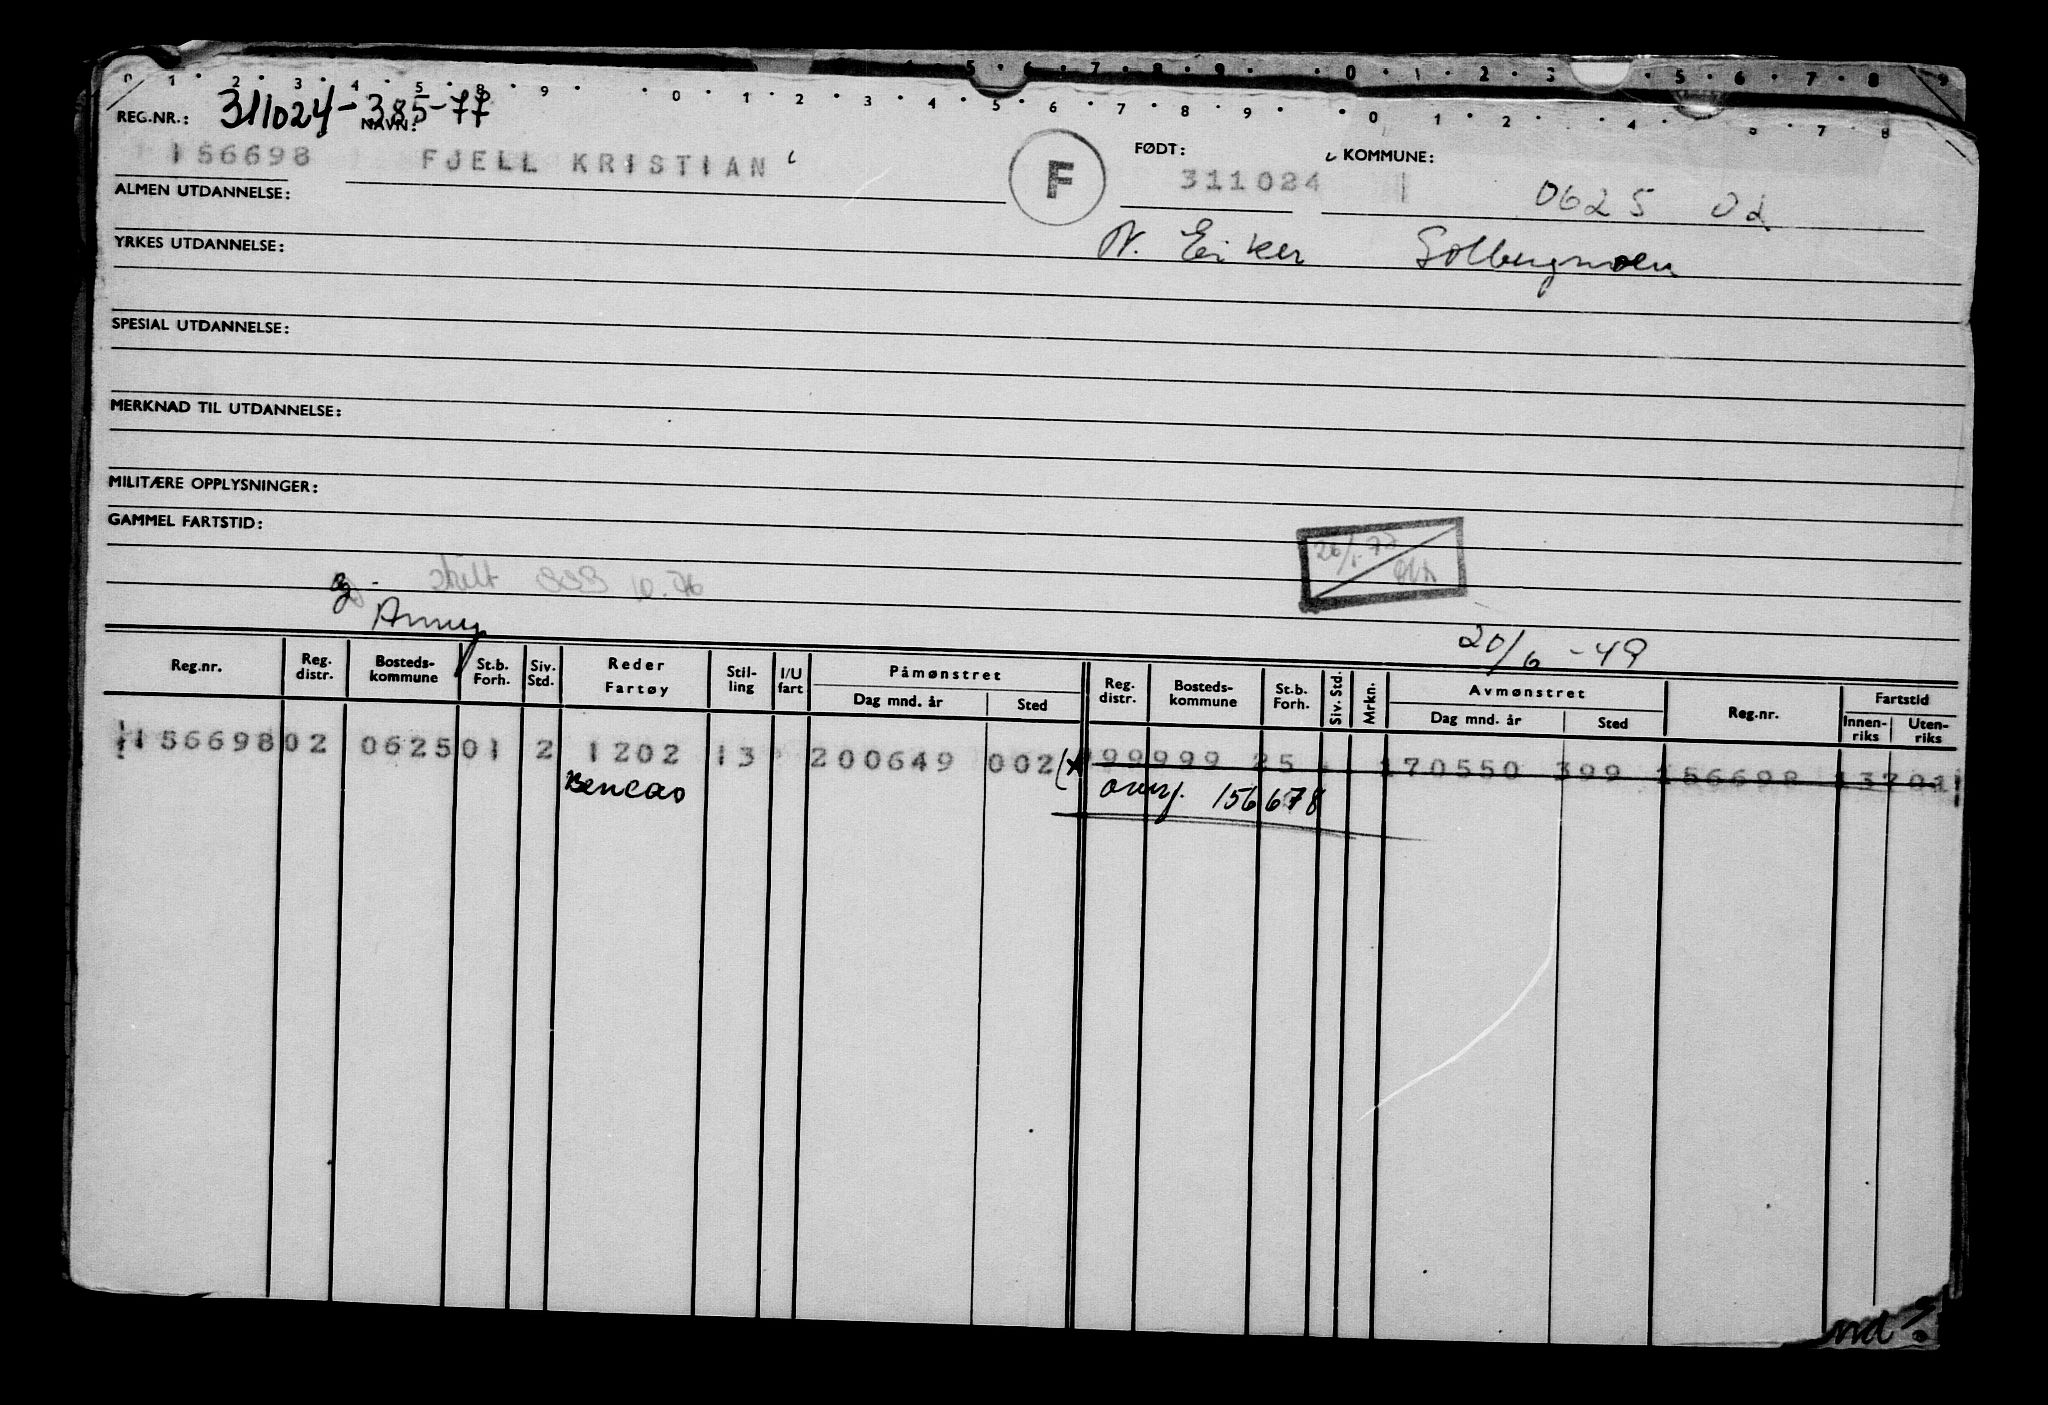 0 1 2 3 4 5 8 9 0 1 2 3 4 5 6 7 8 9 0 1 2 4 6 7 8
5 6 7 8 9 0 1 2 3 5 6 7 8 9
REG.NR.: 311024-385-77 NAVN: FØDT: KOMMUNE:
156698 FJELL KRISTIAN F 311024 0625 02
ALMEN UTDANNELSE:
N. Eiker Solbergmoen
YRKES UTDANNELSE:
SPESIAL UTDANNELSE:
MERKNAD TIL UTDANNELSE:
MILITÆRE OPPLYSNINGER:
GAMMEL FARTSTID:
10.76
20/6 -49
Reg.nr. Reg. distr. Bosteds-kommune St.b. Forh. Siv. Std. Reder Fartøy Stil-ling I/U fart Påmønstret Dag mnd. år Sted Reg. distr. Bosteds-kommune St.b. Forh. Siv. Std. Mrkn. Avmønstret Dag mnd. år Sted Reg.nr. Fartstid Innen-riks Uten-riks
156698 02 0625 01 2 1202 13 200649 002 99999 25 170550 399 156698 13701
Bencas overf. 156678